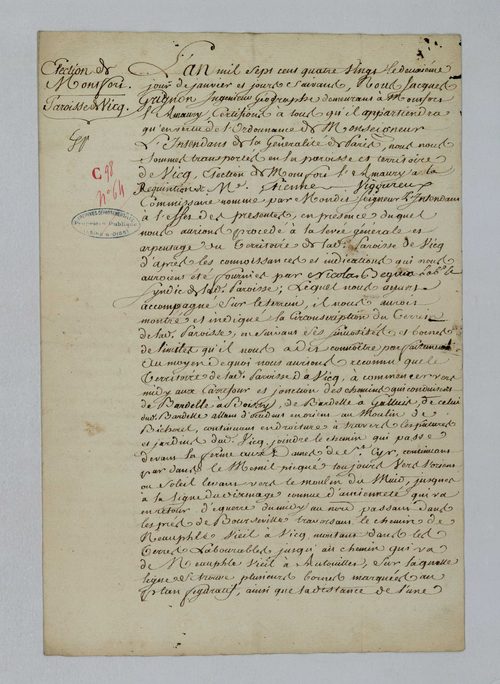 Election de
Montfort.
Paroisse de Vicq.
C 98
n° 64
L'an mil sept cent quatre vingt le deuxieme
jour de janvier et jours suivants, Nous Jacques
Grignon Ingenieur Geographe demeurant à Monfort
L'Amaury Certifions à tous qu'il appartiendra
qu'en vertu de l'Ordonnance de Monseigneur
L'Intendant de la Generalité de Paris, nous nous
sommes transportés en la paroisse et territoire
de Vicq, Election de Monfort l'Amaury a la
Requisition de Mr. Etienne Vigoureux
Commissaire nommé par Mondit Seigneur L'Intendant
à l'effet des presentes, en presence duquel
nous aurions procedé à la levée generale et
arpentage du Territoire de lad. Paroisse de Vicq
d'après les connoissances et indications qui nous
auroient été fournies par Nicolas Lab. le
Syndic de lad. Paroisse; Lequel nous ayant
accompagné sur le terrein, il nous auroit
montré et indiqué la Circonscription du Terrein
de lad. Paroisse, en suivant ses sinuosités et bornes
de limites qu'il nous a dit connoître parfaitement
Au moyen de quoi nous aurions reconnu que le
Territoire de lad. Paroisse de Vicq, à commencer vers
midy aux Carrefour et jonction des chemins qui conduisent
de Bardelle à, de Bardelle à Galluis, de celui
dud. Bardelle allant d'occident en orient au Moulin de
Bicherel, continuant en droiture à travers les patures
et jardins dud. Vicq joindre le chemin qui passe
devant la ferme aux Dames de St. Cyr, continuant
par dans le Mesnil piqué toujours vers l'orient
ou soleil levant vers le moulin du Mud, jusques
à la ligne du visinage connue d'ancienneté qui va
en retour d'equerre du midy au nord passant dans
les prés de Bourseville traversant le chemin de
Neauphle Vieil à Vicq montant dans les
Terres Labourables jusqu'au chemin qui va
de Neauphle Vieil à Autouillet, sur laquelle
ligne se trouve plusieurs bornes marquées au
plan figuratif, ainsi que la distance de l'une